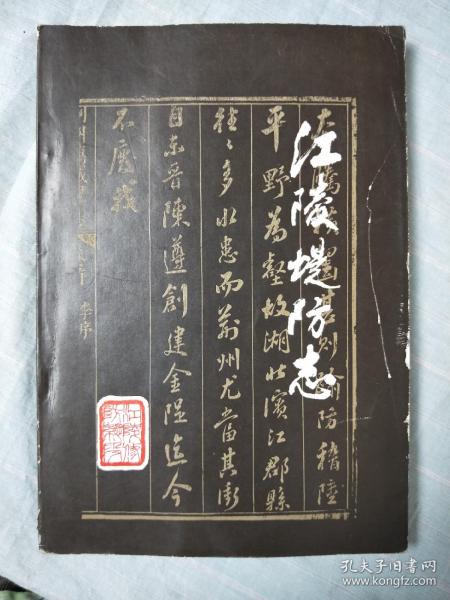 江陵堤防志
防稽陸
平野為壑故湖北濱江郡縣
往往多水患而荊州尤當其衝
自東晉陳遵創建金隄迄今
不廢
李序
孔夫子旧书网
www.kongfz.com